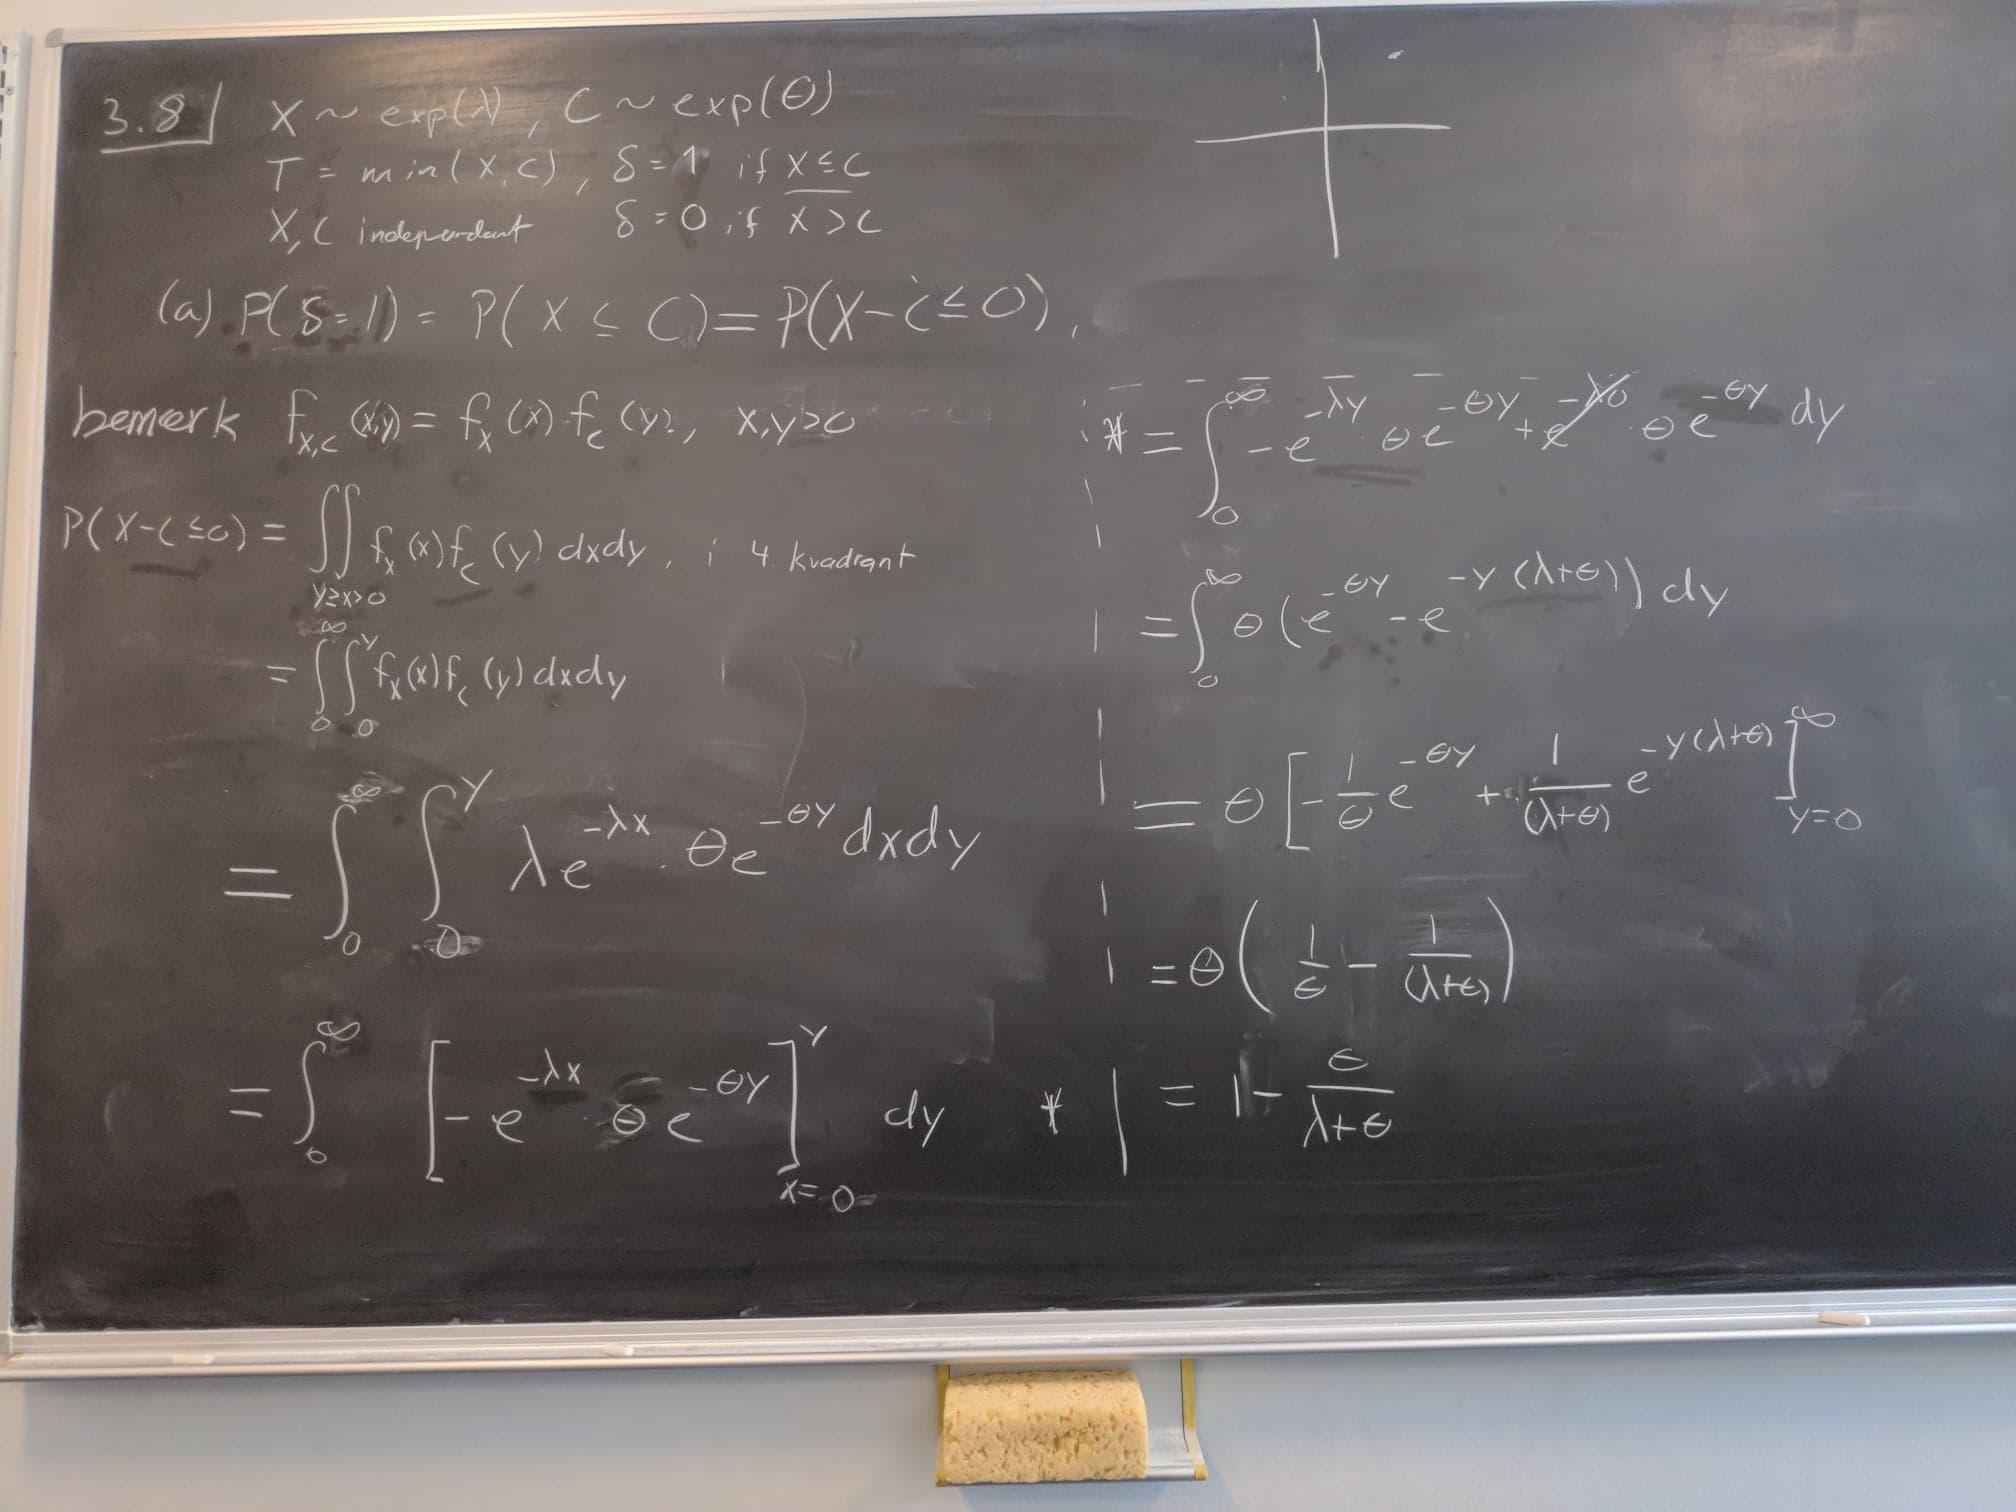 3.8 X ~ exp(λ), C ~ exp(θ)
T = min(X,C), δ=1 if X≤C
X,C independent δ=0, if X>C
(a) P(δ=1) = P(X ≤ C) = P(X-C≤0),
bemærk f_{X,C}(x,y) = f_X(x)·f_C(y), x,y>0
P(X-C≤0) = ∬_{y≥x>0} f_X(x) f_C(y) dxdy, i 4. kvadrant
= ∫_0^∞ ∫_0^y f_X(x) f_C(y) dxdy
= ∫_0^∞ ∫_0^y λe^{-λx} · θe^{-θy} dxdy
= ∫_0^∞ [-e^{-λx} · θe^{-θy}]_{x=0}^y dy *
* = ∫_0^∞ -e^{-λy} · θe^{-θy} + e^{-λ0} · θe^{-θy} dy
= ∫_0^∞ θ(e^{-θy} - e^{-y(λ+θ)}) dy
= θ[-1/θ e^{-θy} + 1/(λ+θ) e^{-y(λ+θ)}]_{y=0}^∞
= θ(1/θ - 1/(λ+θ))
= 1 - θ/(λ+θ)